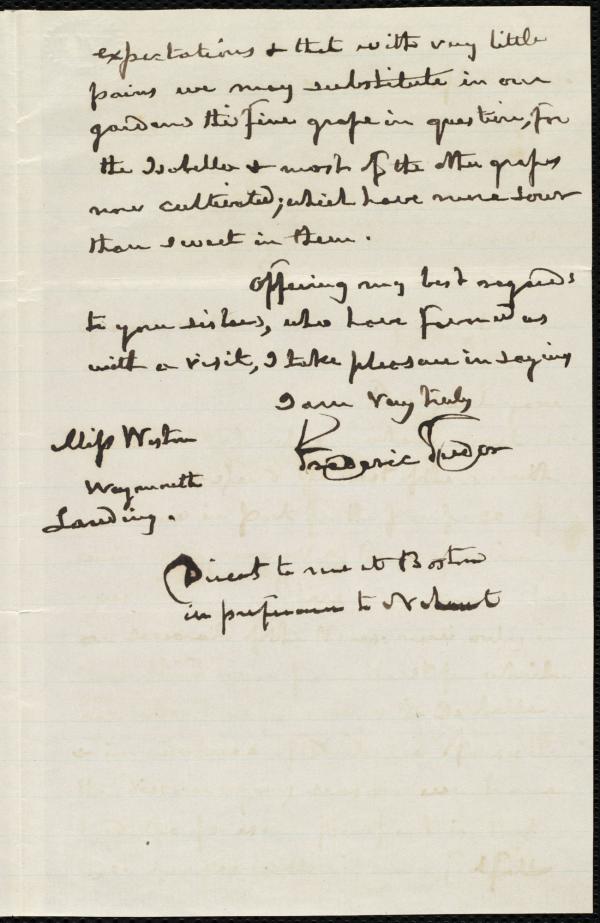 expectations & that with very little
pains we may substitute in our
gardens the fine grape in question, for
the Isabella & most of the other grapes
now cultivated; which have more sour
than sweet in them.
Offering my best regards
to your sisters, who have favored us
with a visit, I take pleasure in saying
I am Very truly
Frederic Tudor
Miss Weston
Weymouth
Landing.
Direct to me at Boston
in preference to Nahant